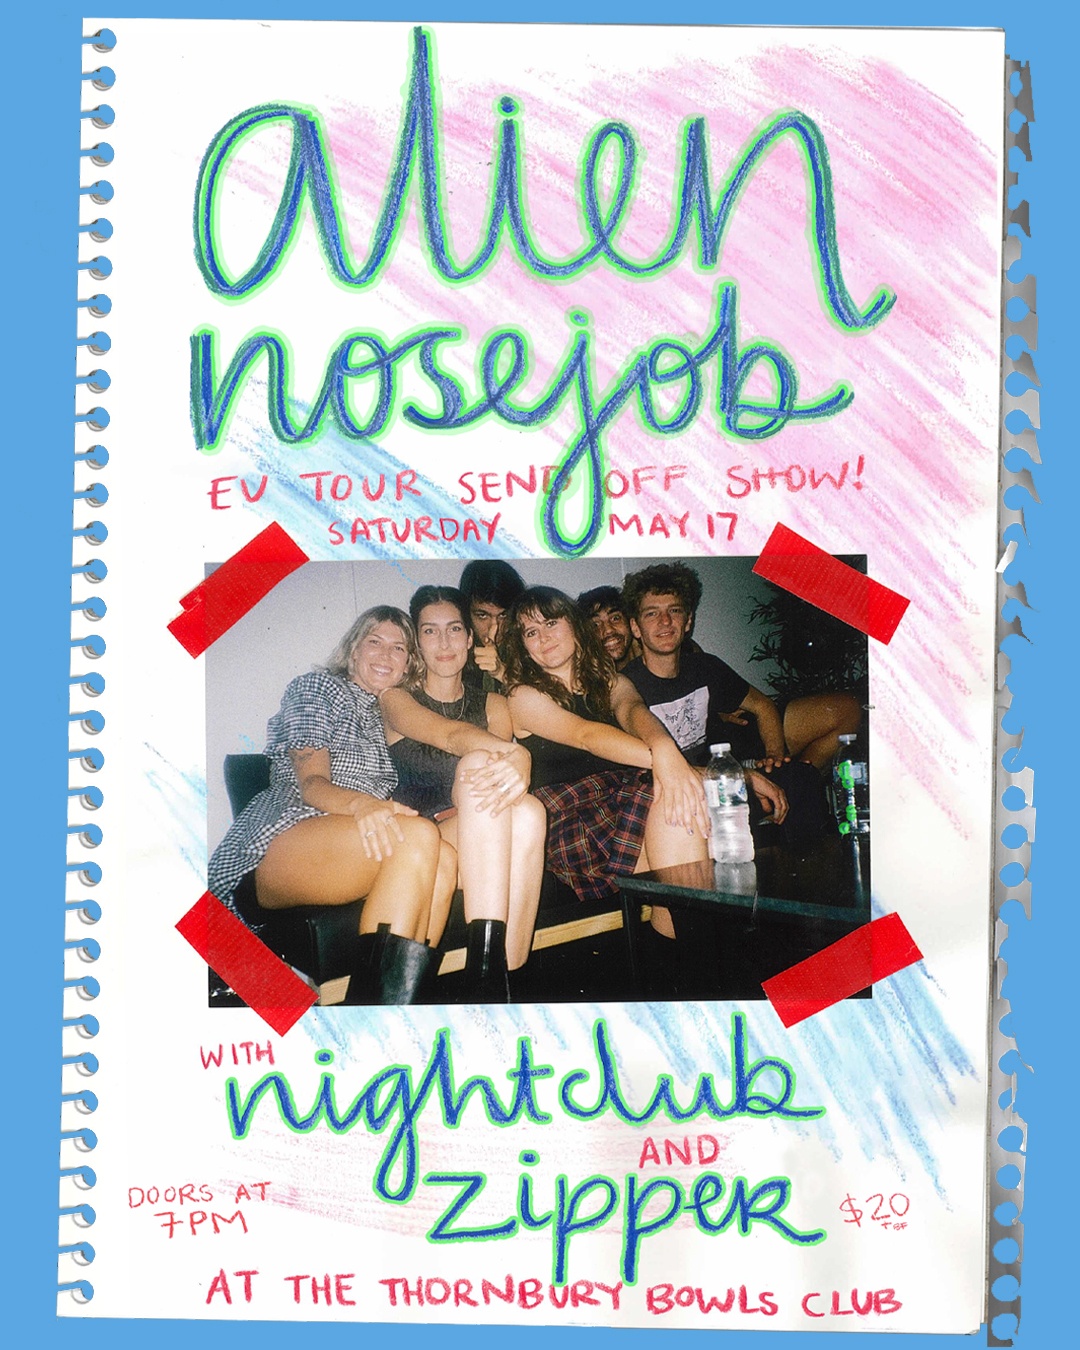 alien
nosejob
EU TOUR SEND OFF SHOW!
SATURDAY MAY 17
WITH
nightclub
AND
zipper
DOORS AT
7PM
$20
+BF
AT THE THORNBURY BOWLS CLUB